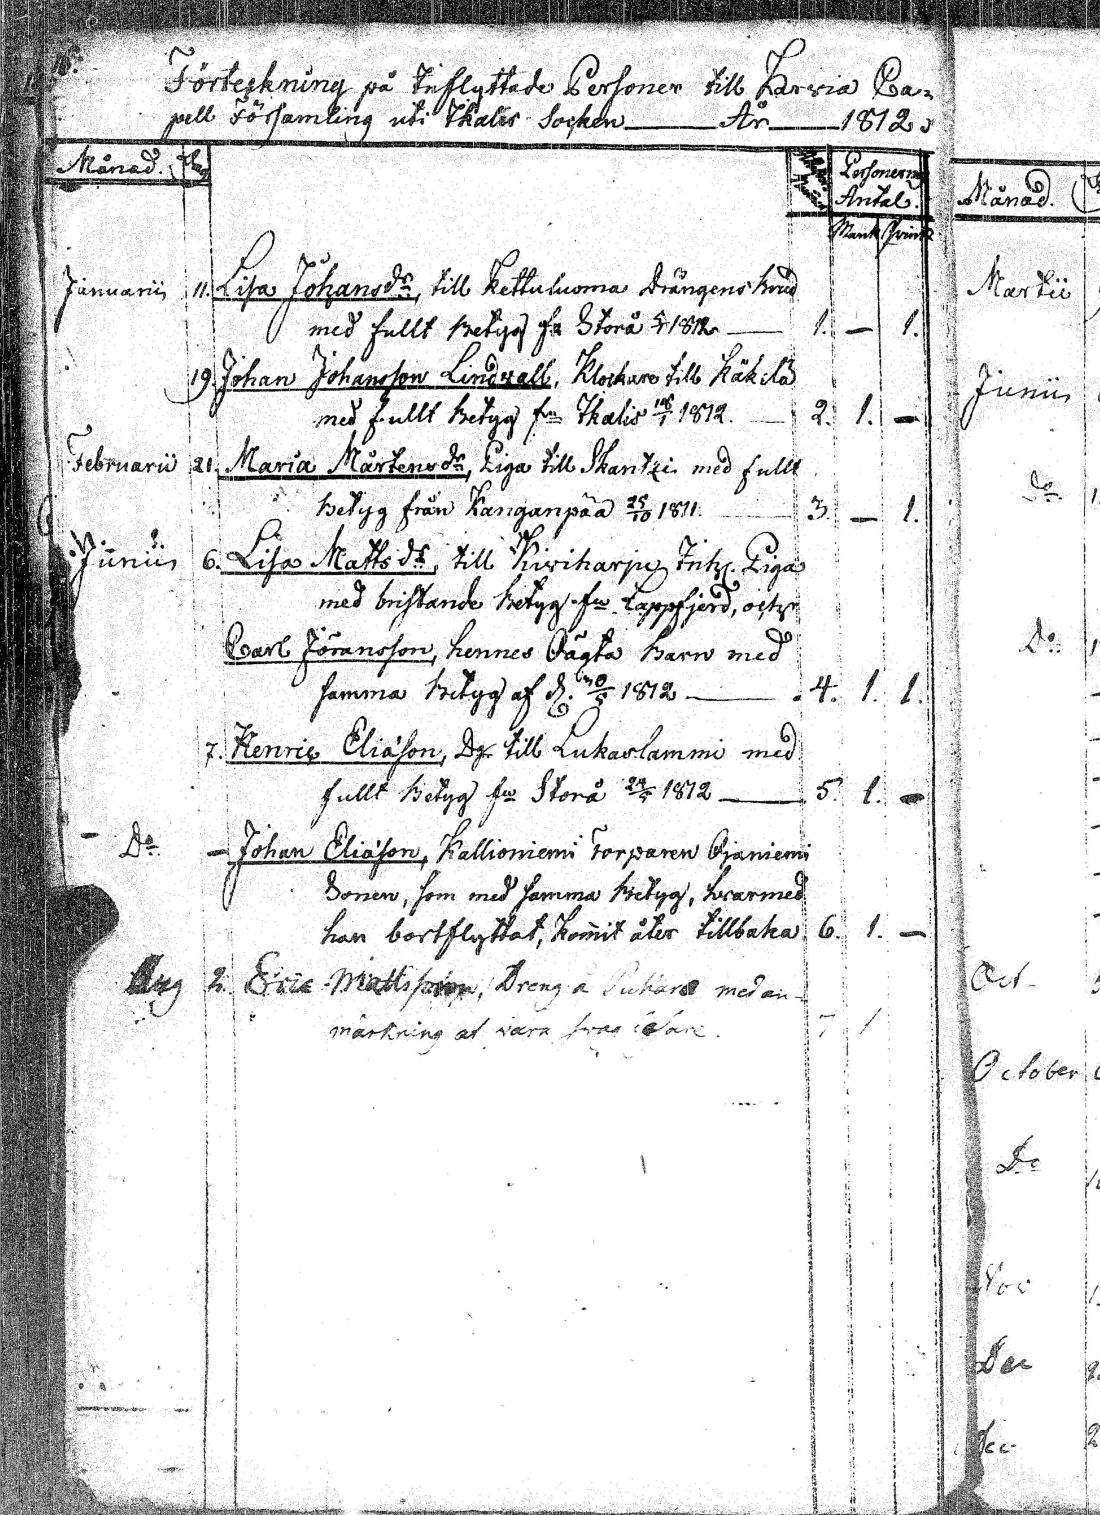 Förteckning på Inflyttade Personer till Karvia Ca-
pell Församling uti Ikalis Socken — År — 1812.
Månad. Dag Personernas
Antal.
Mank Qvink
Januarii 11. Lisa Johansdr, till Kettuluoma Drängens hustru
med fullt betyg fn Storå 1812 — 1. — 1.
19. Johan Johansson Lindvall, Klockare till Käkelä
med fullt betyg frn Ikalis 1812. — 2. 1. —
Februarii 21. Maria Mårtensdr, Piga till Skantzi med fullt
betyg från Kanganpää 25/10 1811. — 3. — 1.
Junii 6. Lisa Mattsdr, till Kiviharju Inh. Piga
med bristande betyg frn Lappfjerd, och
Carl Jöransson, hennes Oägta barn med
samma betyg af d. 1812 — 4. 1. 1.
7. Henric Eliäson, Dr. till Lukaslammi med
fullt betyg frn Storå 24/5 1812 — 5. 1. —
Do — Johan Eliäson, Kallioniemi Torparen Ojaniemi
Sonen, som med samma betyg, hvarmed
han bortflyttat, kom̄it åter tillbaka. 6. 1. —
Aug 2. Eric Mattsson, Dreng a med an-
märkning at vara svag i 7 1
Månad.
Martii
Junii
Do
Do
Oct
October
Do
Nov
Dec
Dec